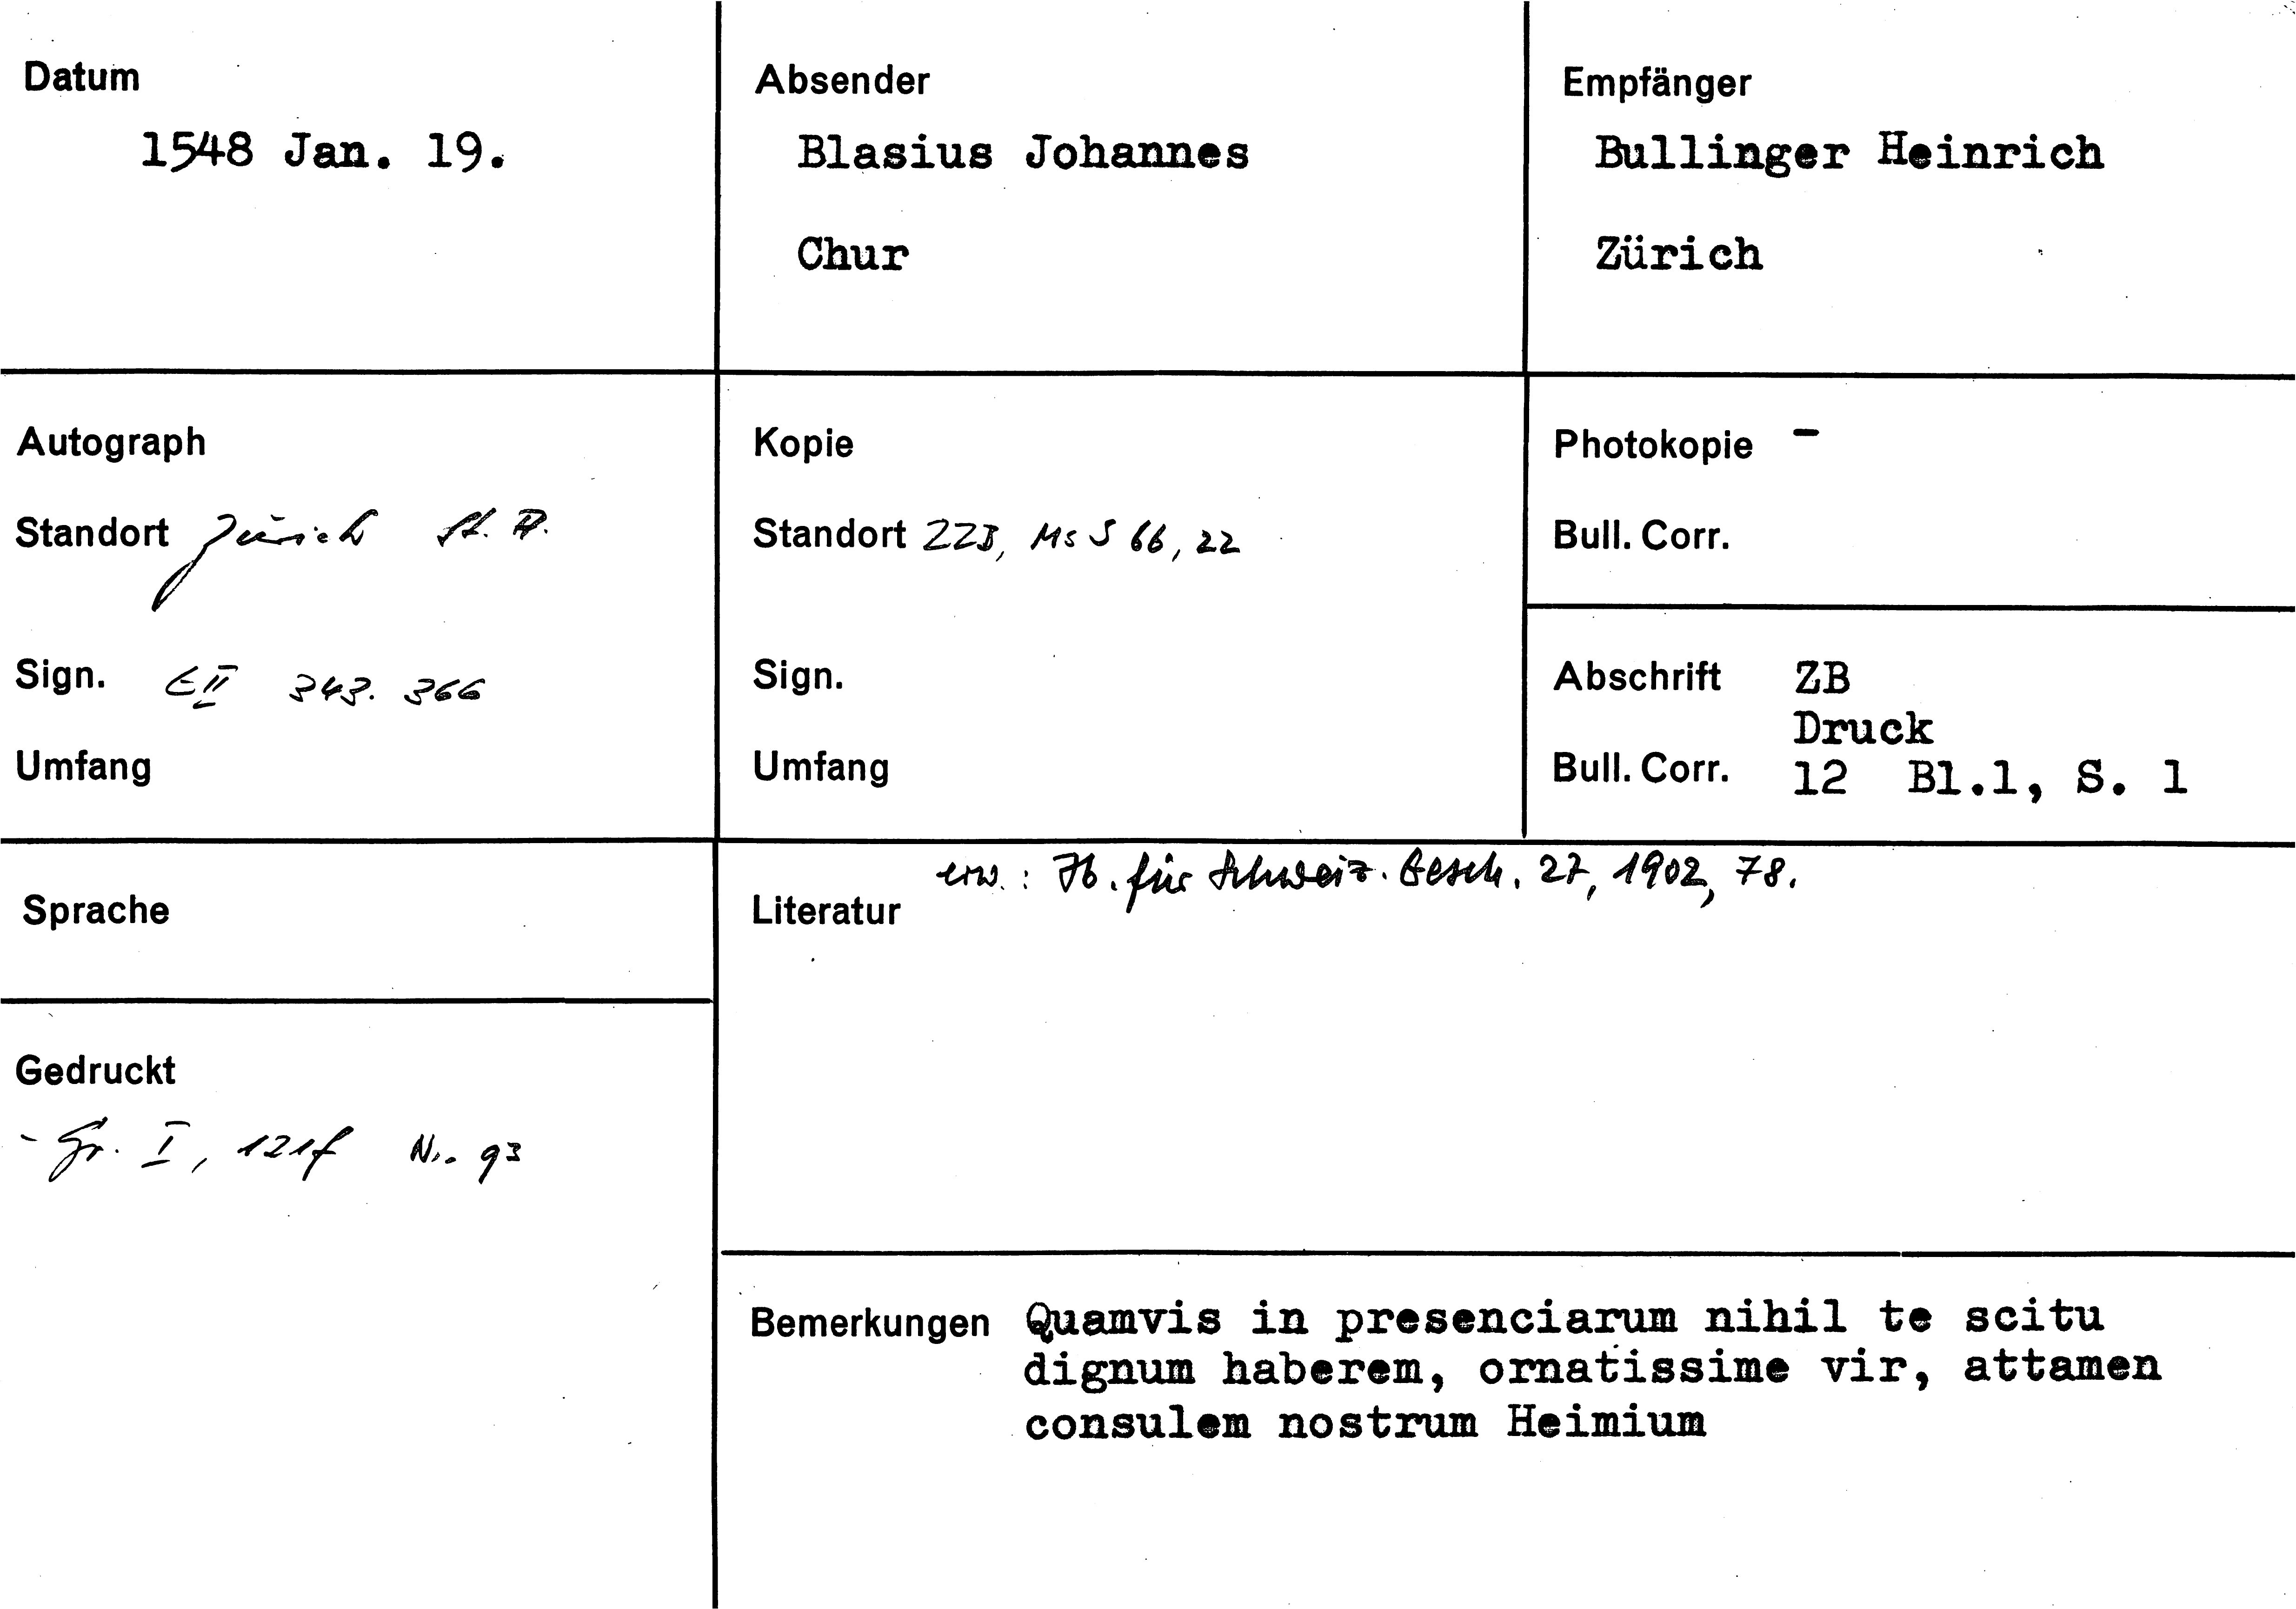 Datum
1548 Jan. 19.
Absender
Blasius Johannes
Chur
Empfänger
Bullinger Heinrich
Zürich
Autograph
Standort Zürich St. A.
Sign. E II 343. 366
Umfang
Kopie
Standort ZZB, Ms S 66, 22
Sign.
Umfang
Photokopie -
Bull. Corr.
Abschrift ZB
Druck
Bull. Corr. 12 Bl.1, S. 1
Sprache
Gedruckt
- Gr. I, 121f Nr. 93
Literatur erw.: Jb. für Schweiz. Gesch. 27, 1902, 78.
Bemerkungen Quamvis in presenciarum nihil te scitu
dignum haberem, ornatissime vir, attamen
consulem nostrum Heimium